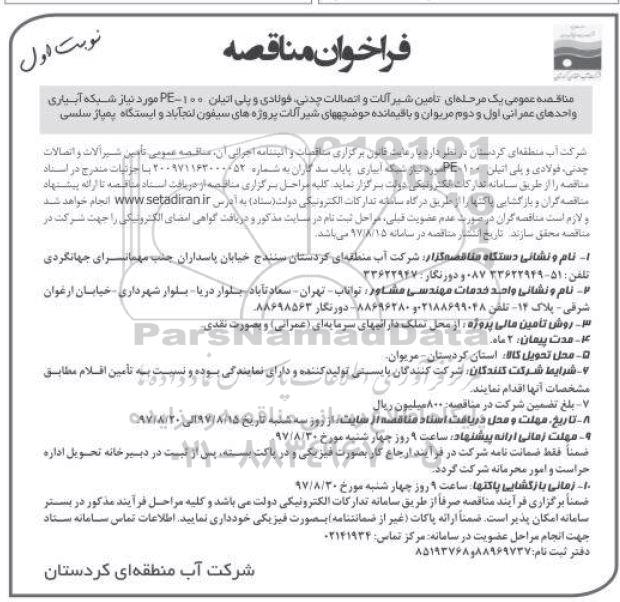 نوبت اول
فراخوان مناقصه
مناقصه عمومی یک مرحله‌ای تامین شیرآلات و اتصالات چدنی، فولادی و پلی اتیلن PE-۱۰۰ مورد نیاز شبکه آبیاری
واحدهای عمرانی اول و دوم مریوان و باقیمانده حوضچه‌های شیرآلات پروژه های سیفون لنج‌آباد و ایستگاه پمپاژ سلسی
شرکت آب منطقه‌ای کردستان در نظر دارد با رعایت قانون برگزاری مناقصات و آئیننامه اجرائی آن، مناقصه عمومی تأمین شیرآلات و اتصالات
چدنی، فولادی و پلی اتیلن PE۱۰۰ مورد نیاز شبکه آبیاری پایاب سد گاران به شماره ۲۰۰۹۷۱۱۶۳۰۰۰۰۵۲ با جزئیات مندرج در اسناد
مناقصه را از طریق سامانه تدارکات الکترونیکی دولت برگزار نماید. کلیه مراحل برگزاری مناقصه از دریافت اسناد مناقصه تا ارائه پیشنهاد
مناقصه‌گران و بازگشایی پاکتها را از طریق درگاه سامانه تدارکات الکترونیکی دولت(ستاد) به آدرس www.setadiran.ir انجام خواهد شد
و لازم است مناقصه‌گران در صورت عدم عضویت قبلی، مراحل ثبت نام در سایت مذکور و دریافت گواهی امضای الکترونیکی را جهت شرکت در
مناقصه محقق سازند. تاریخ انتشار مناقصه در سامانه ۹۷/۸/۱۵ می‌باشد.
۱- نام و نشانی دستگاه مناقصه‌گزار: شرکت آب منطقه‌ای کردستان سنندج خیابان پاسداران جنب مهمانسرای جهانگردی
تلفن: ۵۱-۳۳۶۲۲۹۴۹ ۰۸۷ و دورنگار: ۳۳۶۲۲۹۴۷
۲- نام و نشانی واحد خدمات مهندسی مشاور: تواناب- تهران- سعادت‌آباد- بلوار دریا- بلوار شهرداری-خیابان ارغوان
شرقی- پلاک ۱۴- تلفن ۰۲۱۸۸۶۹۹۰۴۸ و ۸۸۶۹۶۲۸۰-دورنگار ۸۸۶۹۸۵۶۳.
۳- روش تأمین مالی پروژه: از محل تملک دارائیهای سرمایه‌ای (عمرانی) و بصورت نقدی.
۴- مدت پیمان: ۲ ماه.
۵- محل تحویل کالا: استان کردستان- مریوان.
۶- شرایط شرکت کنندگان: شرکت کنندگان بایستی تولیدکننده و دارای نمایندگی بوده و نسبت به تأمین اقلام مطابق
مشخصات آنها اقدام نمایند.
۷- بلغ تضمین شرکت در مناقصه: ۸۰۰ میلیون ریال
۸- تاریخ، مهلت و محل دریافت اسناد مناقصه از سایت: از روز سه شنبه تاریخ ۹۷/۸/۱۵ الی ۹۷/۸/۲۰
۹- مهلت زمانی ارائه پیشنهاد: ساعت ۹ روز چهار شنبه مورخ ۹۷/۸/۳۰
ضمناً فقط ضمانت نامه شرکت در فرآیند ارجاع کار بصورت فیزیکی و در پاکت بسته، پس از ثبت در دبیرخانه تحویل اداره
حراست و امور محرمانه شرکت گردد.
۱۰- زمانی بازگشایی پاکتها: ساعت ۹ روز چهار شنبه مورخ ۹۷/۸/۳۰
ضمناً برگزاری فرآیند مناقصه صرفاً از طریق سامانه تدارکات الکترونیکی دولت می باشد و کلیه مراحل فرآیند مذکور در بستر
سامانه امکان پذیر است. ضمناً ارائه پاکات (غیر از ضمانتنامه) بصورت فیزیکی خودداری نمایید. اطلاعات تماس سامانه ستاد
جهت انجام مراحل عضویت در سامانه: مرکز تماس: ۰۲۱۴۱۹۳۴
دفتر ثبت نام: ۸۸۹۶۹۷۳۷ و ۸۵۱۹۳۷۶۸
شرکت آب منطقه‌ای کردستان
ParsNamadData